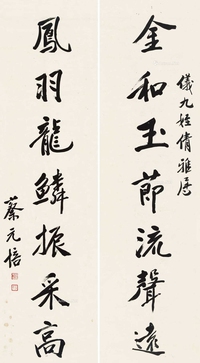 儀九姪倩雅屬
金和玉節流聲遠
鳳羽龍鱗振采高
蔡元培